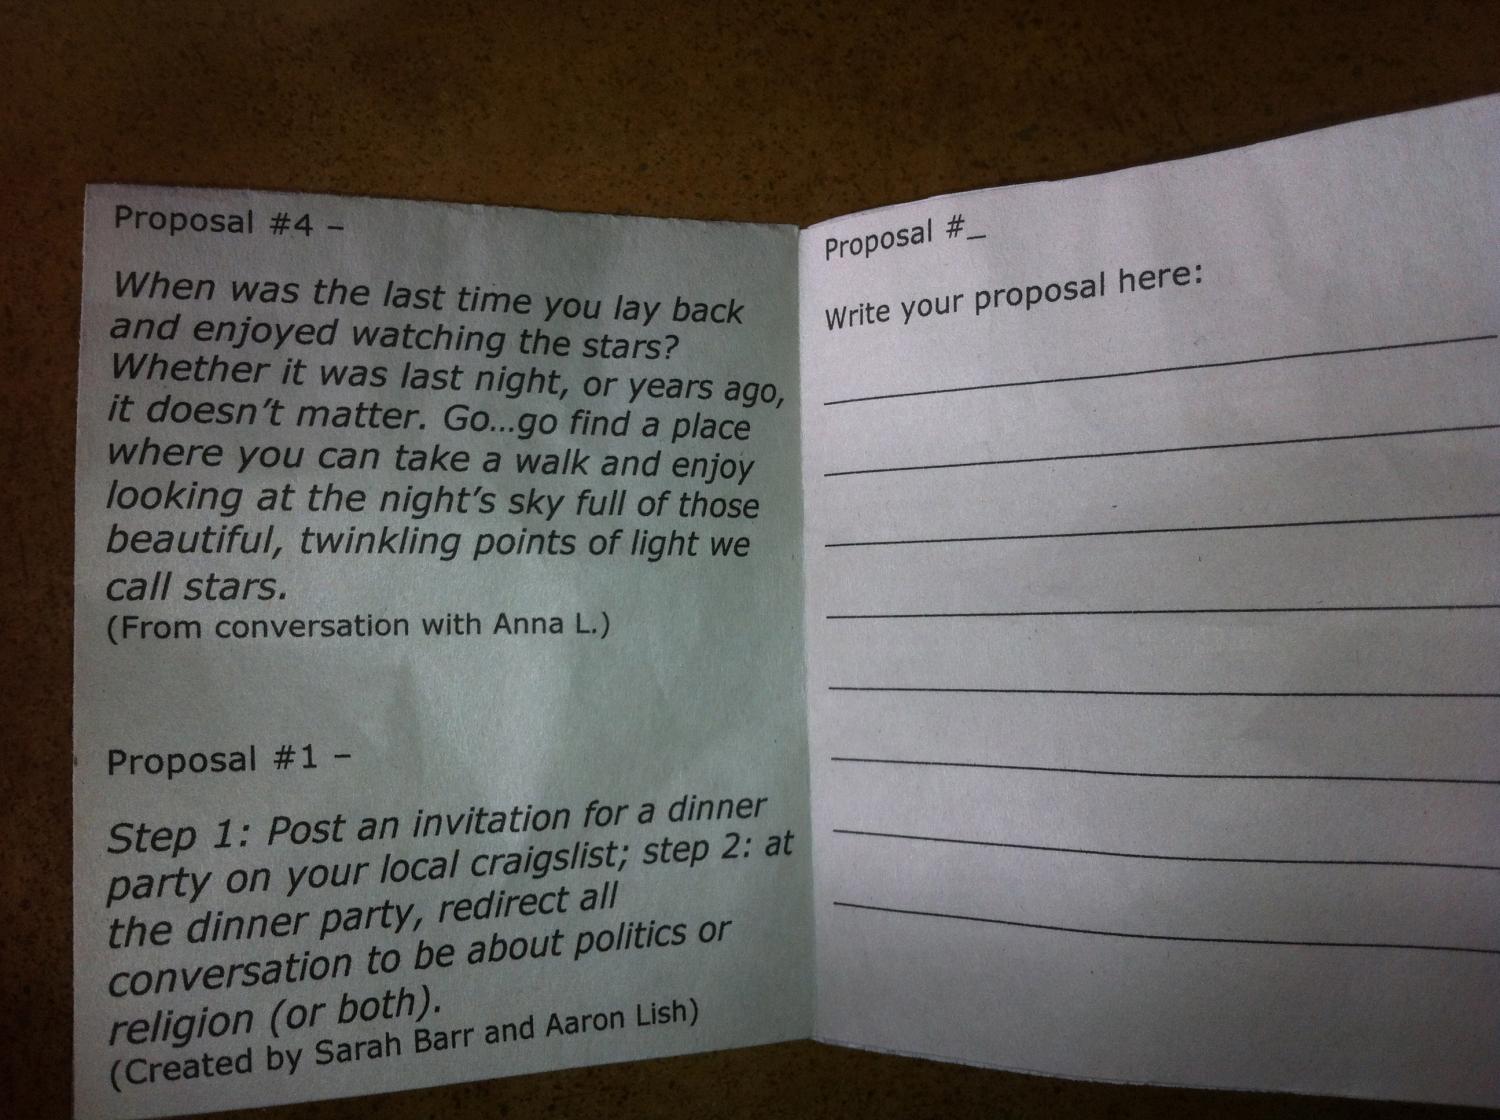 Proposal #4 –
When was the last time you lay back
and enjoyed watching the stars?
Whether it was last night, or years ago,
it doesn't matter. Go...go find a place
where you can take a walk and enjoy
looking at the night's sky full of those
beautiful, twinkling points of light we
call stars.
(From conversation with Anna L.)
Proposal #1 –
Step 1: Post an invitation for a dinner
party on your local craigslist; step 2: at
the dinner party, redirect all
conversation to be about politics or
religion (or both).
(Created by Sarah Barr and Aaron Lish)
Proposal #_
Write your proposal here: